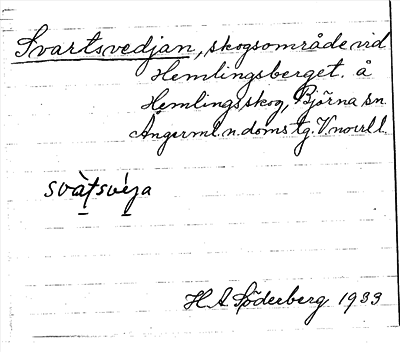 Svartsvedjan, skogsområde vid
Hemlingsberget. å
Hemlings skog, Björna sn.
Ångerml. n. doms tg. V.norrl l.
svàtsvéja
H. A. Söderberg 1933